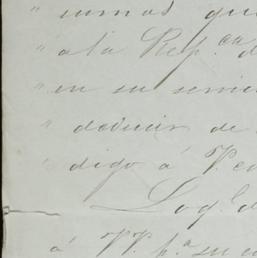 " sumas que
" a la Rep.ca d
" en su servic
" deducir de
" digo á V. en
Log.l d
á VV. p.a su co